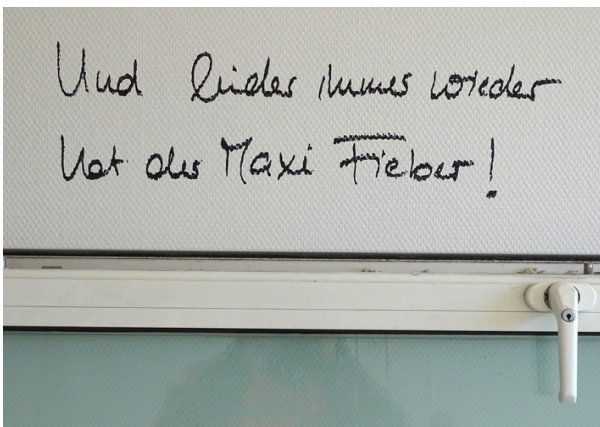 Und leider immer wieder
Hat der Maxi Fieber!